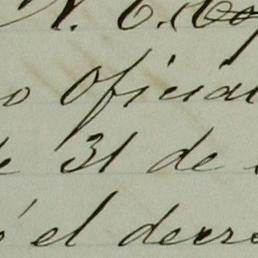 N. C.
o Oficial
de 31 de
ó el decre